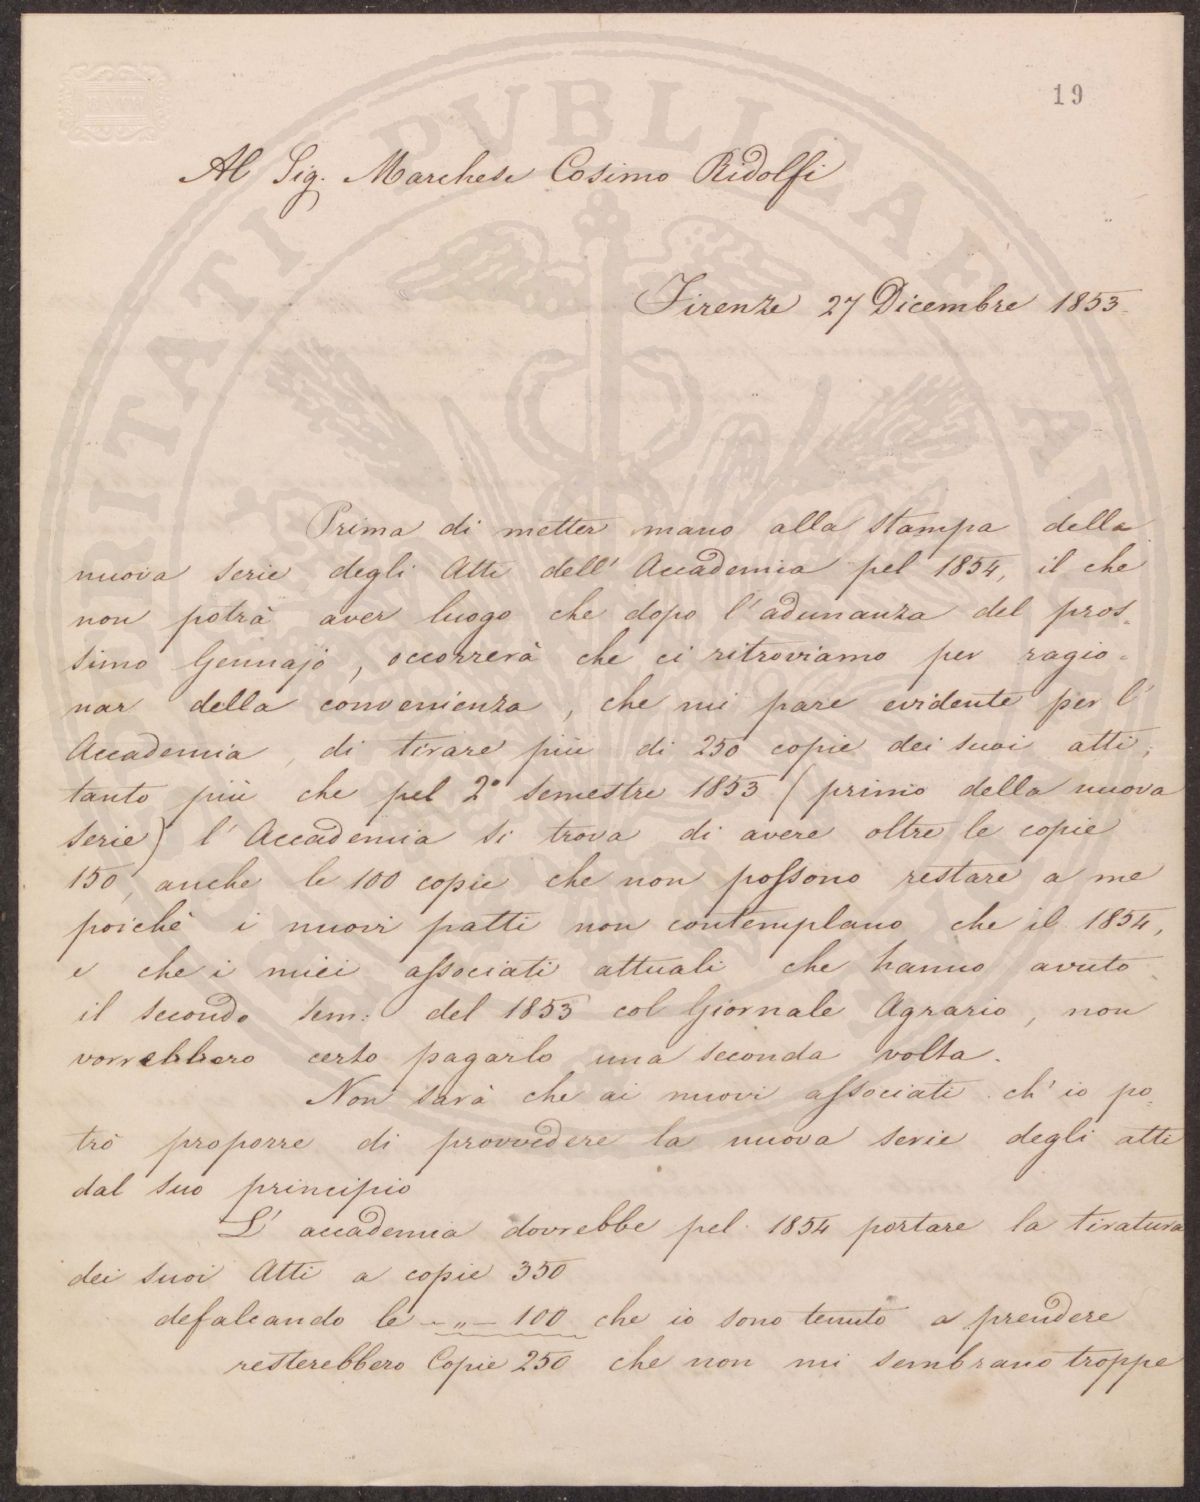 19
BATH
Al Sig. Marchese Cosimo Ridolfi
Firenze 27 Dicembre 1853.
Prima di metter mano alla stampa della
nuova serie degli Atti dell' Accademia pel 1854, il che
non potrà aver luogo che dopo l'adunanza del pros-
simo Gennajo, occorrerà che ci ritroviamo per ragio-
nar della convenienza, che mi pare evidente per l'
Accademia, di tirare più di 250 copie dei suoi atti,
tanto più che pel 2° semestre 1853 (primo della nuova
serie) l'Accademia si trova di avere oltre le copie
150, anche le 100 copie che non possono restare a me
poichè i nuovi patti non contemplano che il 1854,
e che i miei associati attuali che hanno avuto
il secondo sem: del 1853 col Giornale Agrario, non
vorrebbero certo pagarlo una seconda volta.
Non sarà che ai nuovi associati ch'io po-
trò proporre di provvedere la nuova serie degli atti
dal suo principio
L'accademia dovrebbe pel 1854 portare la tiratura
dei suoi Atti a copie 350
defalcando le - „ - 100 che io sono tenuto a prendere
resterebbero Copie 250 che non mi sembrano troppe
PUBLICAE